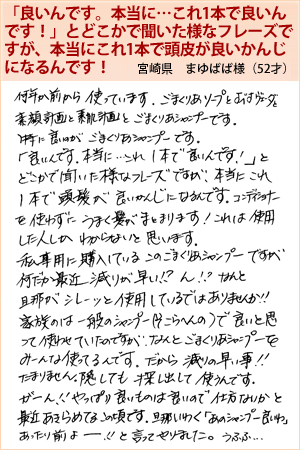 「良いんです。本当に…これ1本で良いんで
す！」とどこかで聞いた様なフレーズで
すが、本当にこれ1本で頭皮が良いかんじ
になるんです！ 宮崎県 まゆばば様（52才）
何年か前から使っています。ごまくりあソープと
素顔計画と素肌計画とごまくりあシャンプーです。
特に良いのが ごまくりあシャンプーです。
「良いんです。本当に…これ1本で良いんです！」と
どこかで聞いた様なフレーズですが、本当にこれ
1本で頭髪が良いかんじになるんです。コンディショナー
を使わずにうまく髪がまとまります！これは使用
した人しかわからないと思います。
私専用に購入しているこのごまくりあシャンプーですが
何だか最近減りが早い!? ん!? なんと
旦那がシレーッと使用しているではありませんか!!
家族のは一般のシャンプー(そこらへんの)で良いと思
って使わせていたのですが、なんとごまくりあシャンプーを
みーんな使ってるんです。だから減りの早い事!!
たまりません。隠しても探し出して使うんです。
ガーン!! やっぱり良いものは良いので仕方ないかと
最近あきらめてるこの頃です。旦那いわく「あのシャンプー良いわ」
あったり前よー!! と言ってやりました。うふふ…